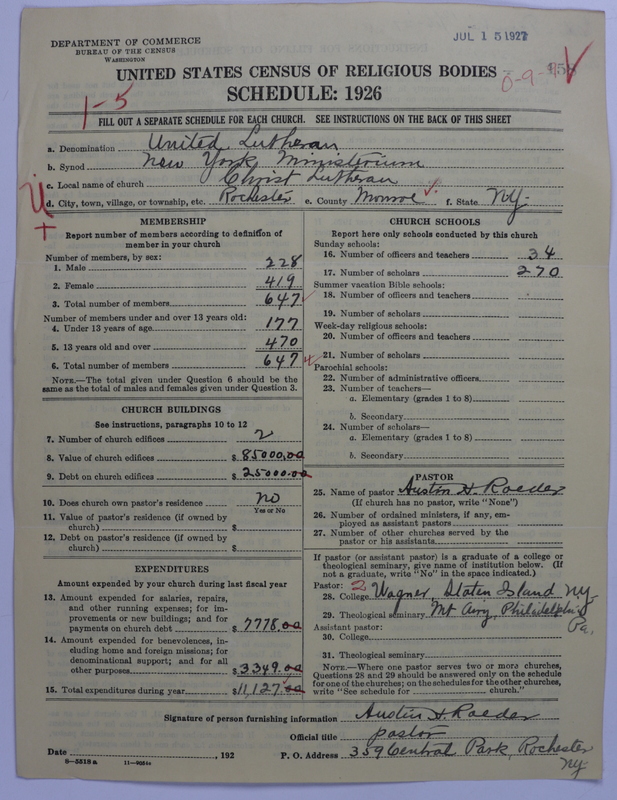 DEPARTMENT OF COMMERCE
BUREAU OF THE CENSUS
WASHINGTON
JUL 15 1927
UNITED STATES CENSUS OF RELIGIOUS BODIES
SCHEDULE: 1926
0-9-9
1-5
FILL OUT A SEPARATE SCHEDULE FOR EACH CHURCH. SEE INSTRUCTIONS ON THE BACK OF THIS SHEET
a. Denomination United Lutheran
b. Synod New York Ministerium
c. Local name of church Christ Lutheran
d. City, town, village, or township, etc. Rochester e. County Monroe f. State NY.
MEMBERSHIP
Report number of members according to definition of
member in your church
Number of members, by sex:
1. Male 228
2. Female 419
3. Total number of members 647
Number of members under and over 13 years old:
4. Under 13 years of age 177
5. 13 years old and over 470
6. Total number of members 647
NOTE.—The total given under Question 6 should be the
same as the total of males and females given under Question 3.
CHURCH BUILDINGS
See instructions, paragraphs 10 to 12
7. Number of church edifices 2
8. Value of church edifices $85000.00
9. Debt on church edifices $25000.00
10. Does church own pastor's residence no
Yes or No
11. Value of pastor's residence (if owned by
church) $
12. Debt on pastor's residence (if owned by
church) $
EXPENDITURES
Amount expended by your church during last fiscal year
13. Amount expended for salaries, repairs,
and other running expenses; for im-
provements or new buildings; and for
payments on church debt $7778.00
14. Amount expended for benevolences, in-
cluding home and foreign missions; for
denominational support; and for all
other purposes $3349.00
15. Total expenditures during year $11,127.00
CHURCH SCHOOLS
Report here only schools conducted by this church
Sunday schools:
16. Number of officers and teachers 34
17. Number of scholars 270
Summer vacation Bible schools:
18. Number of officers and teachers
19. Number of scholars
Week-day religious schools:
20. Number of officers and teachers
21. Number of scholars
Parochial schools:
22. Number of administrative officers
23. Number of teachers—
a. Elementary (grades 1 to 8)
b. Secondary
24. Number of scholars—
a. Elementary (grades 1 to 8)
b. Secondary
PASTOR
25. Name of pastor Austin H. Roeder
(If church has no pastor, write "None")
26. Number of ordained ministers, if any, em-
ployed as assistant pastors
27. Number of other churches served by the
pastor or his assistants
If pastor (or assistant pastor) is a graduate of a college or
theological seminary, give name of institution below. (If
not a graduate, write "No" in the space indicated.)
Pastor: 2
28. College Wagner, Staten Island NY.
29. Theological seminary Mt Airy, Philadelphia
Pa.
Assistant pastor:
30. College
31. Theological seminary
NOTE.—Where one pastor serves two or more churches,
Questions 28 and 29 should be answered only on the schedule
for one of the churches; on the schedules for the other churches,
write "See schedule for church."
Signature of person furnishing information Austin H. Roeder
Official title pastor
Date , 192 P. O. Address 359 Central Park, Rochester
NY.
8—5518 a 11—9051